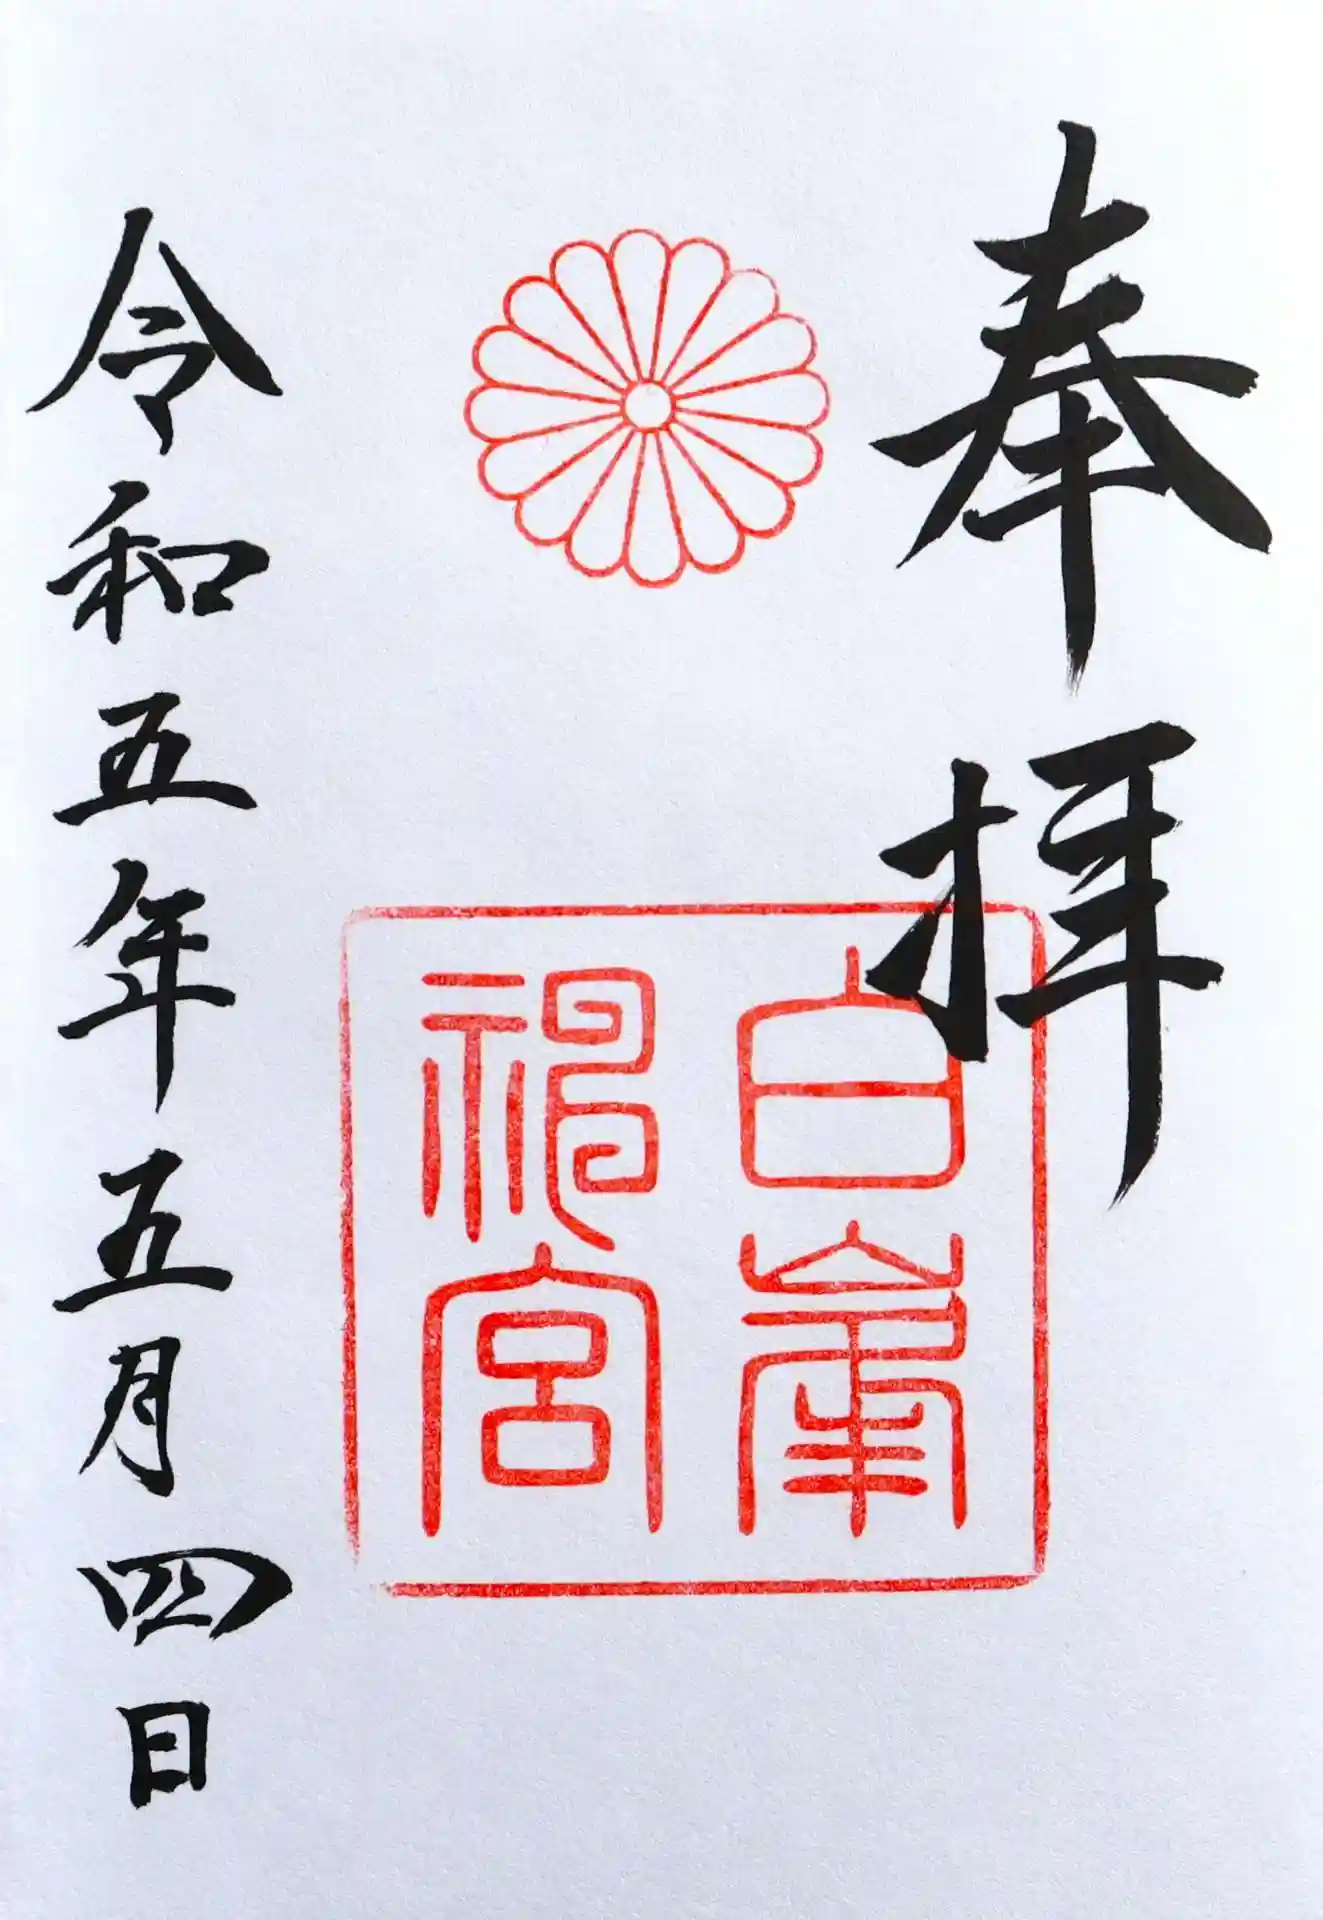 奉拝
白峯
神宮
令和五年五月四日